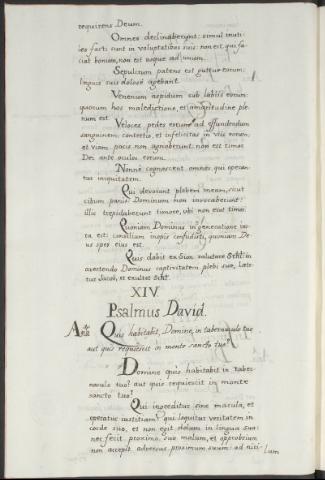 requirens Deum.
Omnes declinaberunt: simul inuti-
les facti sunt in voluptatibus suis: non est qui fa-
ciat bonum, non est usque ad unum.
Sepulcrum patens est guttur eorum:
linguis suis dolose agebant.
Venenum aspidum sub labiis eorum:
quorum hos maledictione, et amaritudine ple-
num est.
Veloces pedes eorum ad effundendum
sanguinem: contritio, et infelicitas in viis eorum,
et viam pacis non agnoberunt: non est timor
Dei ante oculos eorum.
Nonne cognoscent omnes qui operan-
tur iniquitatem.
Qui devorant plebem meam, sicut
cibum panis: Dominum non invocaberunt:
illic trepidaberunt timore, ubi non erat timor.
Quoniam Dominus in generatione jus-
ta est: consilium inopis confudisti, quoniam De-
us spes eius est.
Quis dabit ex Sion salutare
avertendo Dominus captivitatem plebi suæ, Læte-
tur Jacob, et exultet
XIV
Psalmus David.
Quis habitabit, Domine, in tabernaculo tuo
aut quis requiescit in monte sancto tuo?
Domine quis habitabit in taber-
naculo tuo? aut quis requiescit in monte
sancto tuo?
Qui ingreditur sine macula, et
operatur iustitiam: qui loquitur veritatem in
corde suo, et non egit dolum in lingua sua:
nec fecit proximo suo malum, et opprobrium
non accepit adversus proximum suum: ad nihi-
lum